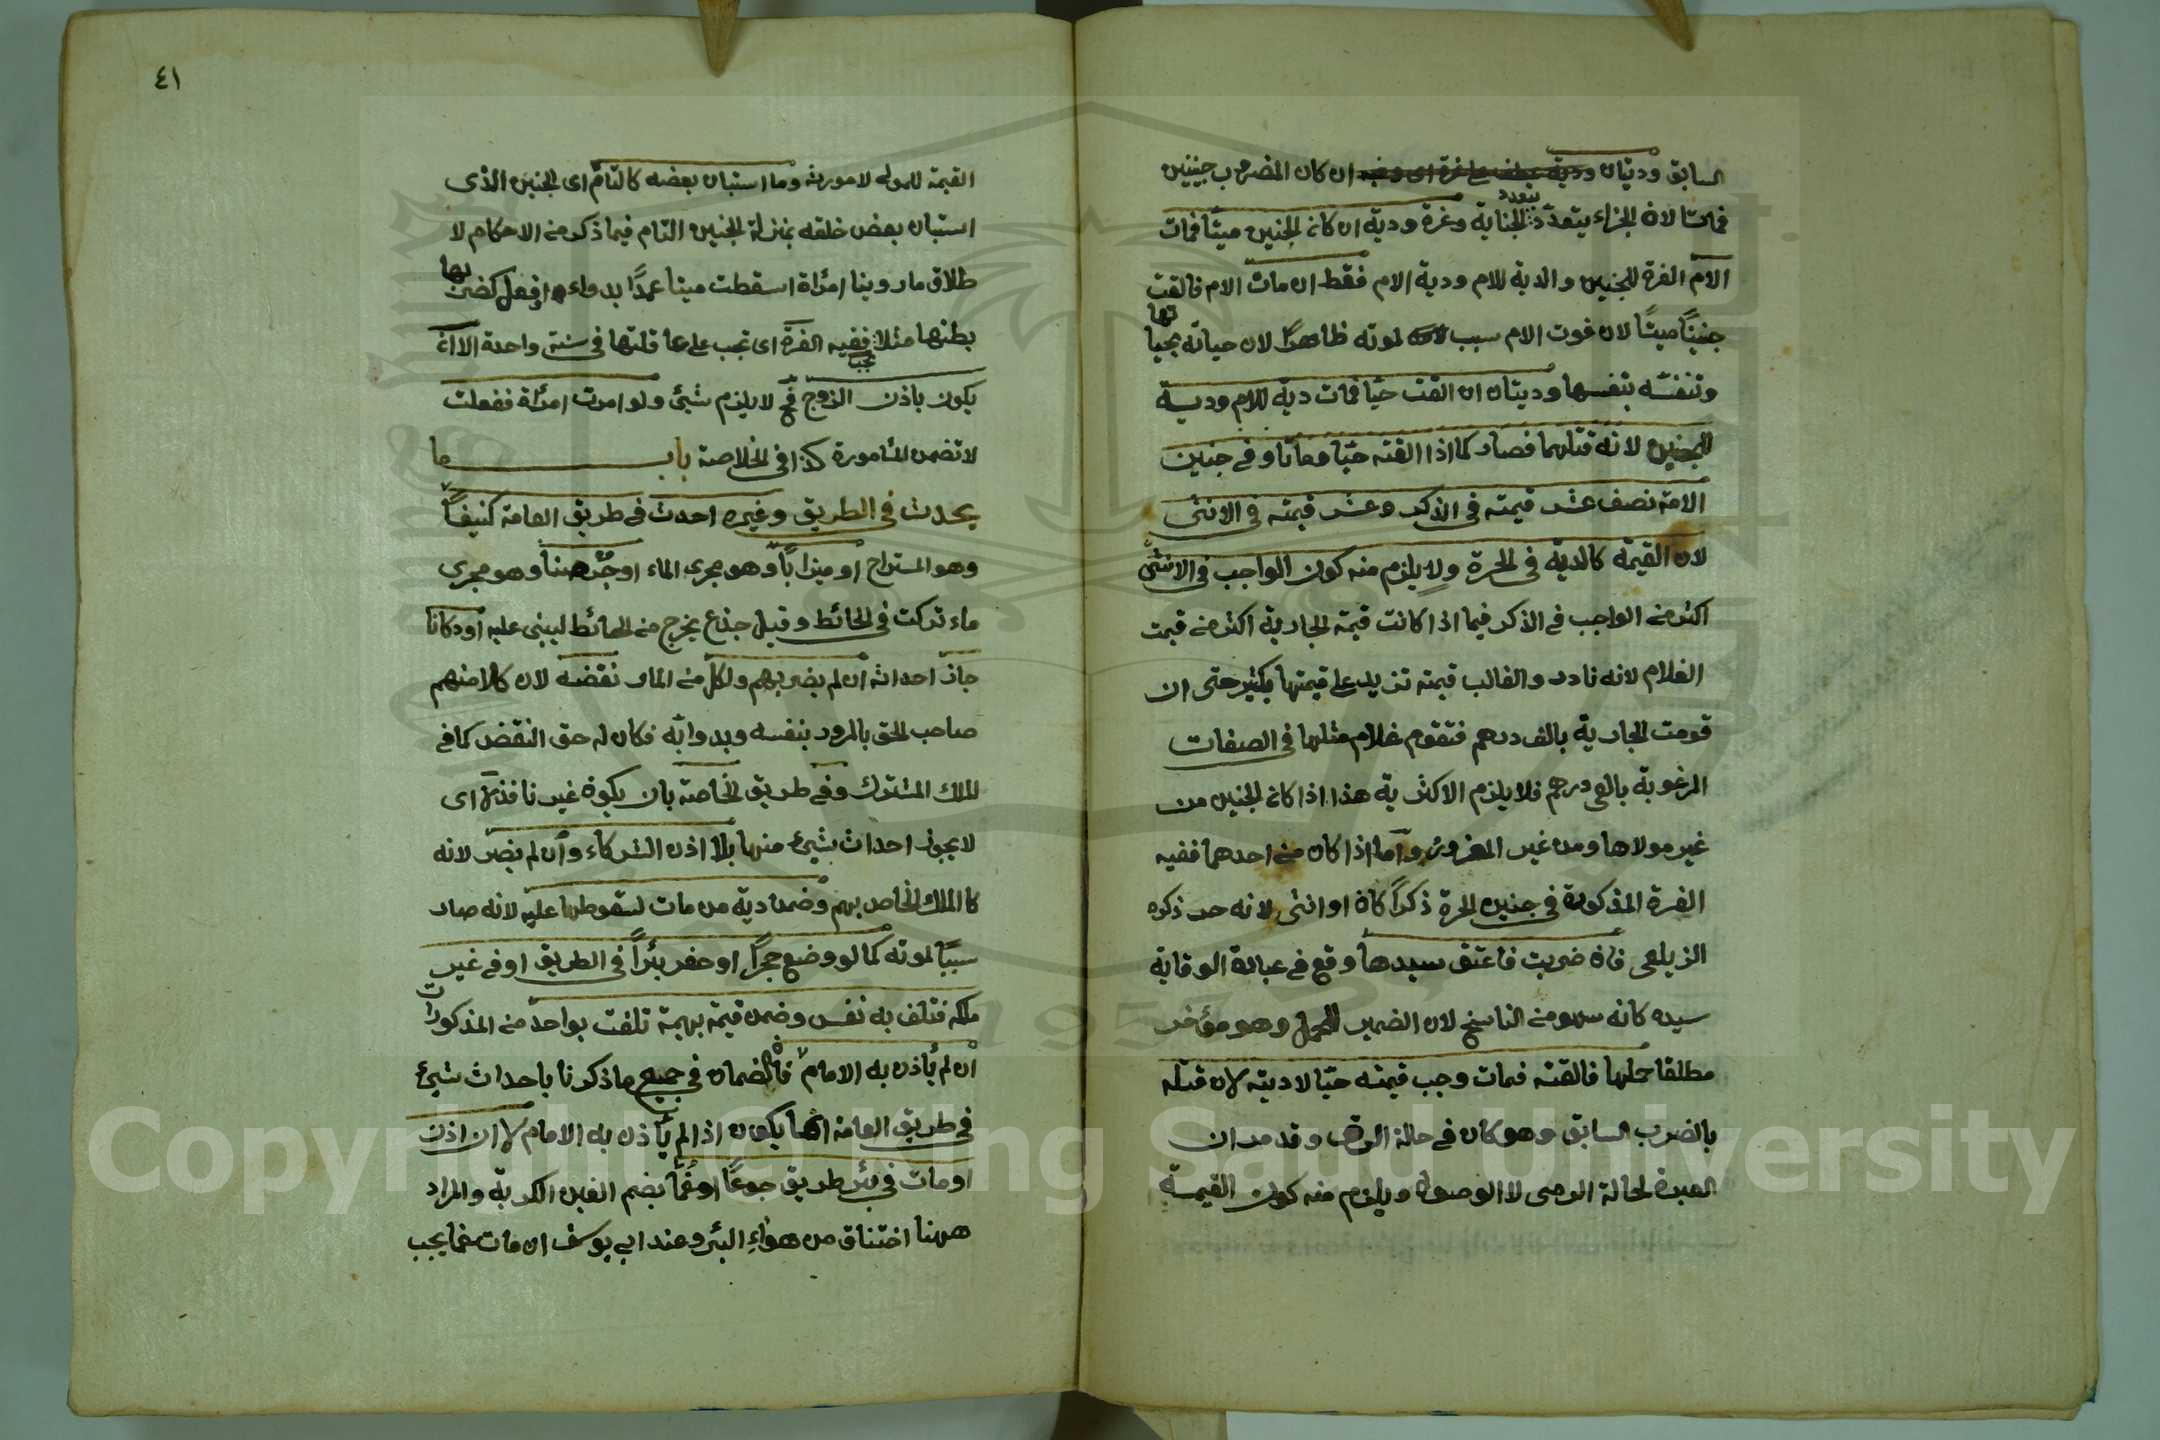 السابق وديتان ان كان المضروب جنينين
فماتتا لان الجزاء يتعدد بتعدد الجناية وغرة ودية ان كان الجنين ميتا فماتت
الام الغرة للجنين والدية للام ودية الام فقط ان مات الام فالقت
جنينًا ميتًا لان فوت الام سبب لموته ظاهرًا لان حياته بحياتها
وتنفسه بتنفسها وديتان ان القت حيّا فمات دية للام ودية
للجنين لانه قتلهما فصار كما اذا القته حيّا وماتا وفي جنين
الامة نصف عشر قيمته في الذكر وعشر قيمته في الانثى
لان القيمة كالدية في الحرة ولا يلزم منه كون الواجب في الانثى
اكثر من الواجب في الذكر فيما اذا كانت قيمة الجارية اكثر من قيمت
الغلام لانه نادر والغالب قيمته تزيد على قيمتها بكثير حتى ان
قومت الجارية بالف درهم فتقوم غلام مثلها في الصفات
المرغوبة بالفي درهم فلا يلزم الاكثرية هذا اذا كان الجنين من
غير مولاها ومن غير المغرور واما اذا كان من احدهما ففيه
الغرة المذكورة في جنين الحرة ذكرًا كان او انثى لانه حر ذكره
الزيلعي فان ضربت فاعتق سيدها وقع في عبارة الوقاية
سيده كانه سهو من الناسخ لان الضمير للحمل وهو مؤخر
مطلقا حملها فالقته فمات وجب قيمته حيّا لا ديته لان قتله
بالضرب السابق وهو كان في حالة الرق وقد مر ان
العبرة لحالة الرمي لا الوصول ويلزم منه كون القيمة
٤١
القيمة للمولى لا مورثه وما استبان بعضه كالتام اى الجنين الذى
استبان بعض خلقه بمنزلة الجنين التام فيما ذكر من الاحكام لا
طلاق ما روينا امرأة اسقطت ميتا عمدًا بدواء او فعل كضربها
بطنها مثلا ففيه الغرة اى تجب على عاقلتها فى سنة واحدة الا ان
يكون باذن الزوج فح لا يلزم شئ ولو امرت امرأة ففعلت
لا تضمن المأمورة كذا في الخلاصة باب ما
يحدث في الطريق وغيره احدث في طريق العامة كنيفًا
وهو المستراح او ميزابًا وهو مجرى الماء او جرصنا وهو مجرى
ماء تركت في الحائط وقيل جذع يخرج من الحائط ليبنى عليه او دكانا
جاز احداثه ان لم يضر بهم ولكل من المار نقضه لان كلا منهم
صاحب الحق بالمرور بنفسه وبدوابه فكان له حق النقض كما في
الملك المشترك وفي طريق الخاصة بان يكون غير نافذ لا اى
لا يجوز احداث شئ منها بلا اذن الشركاء وان لم يضر لانه
كالملك الخاص بهم وضمن دية من مات لسقوطها عليه لانه صار
سببًا لموته كما لو وضع حجرًا او حفر بئرًا في الطريق او في غير
ملكه فتلف به نفس وضمن قيمة بهيمة تلفت بواحد من المذكورات
ان لم يأذن به الامام فالضمان في جميع ما ذكرنا باحداث شئ
في طريق العامة انما يكون اذا لم يأذن به الامام لا ان اذن
او مات في بئر طريق جوعًا او غمًّا بضم الغين الكربة والمراد
ههنا اختناق من هواء البئر وعند ابى يوسف ان مات غما يجب
Copyright © King Saud University